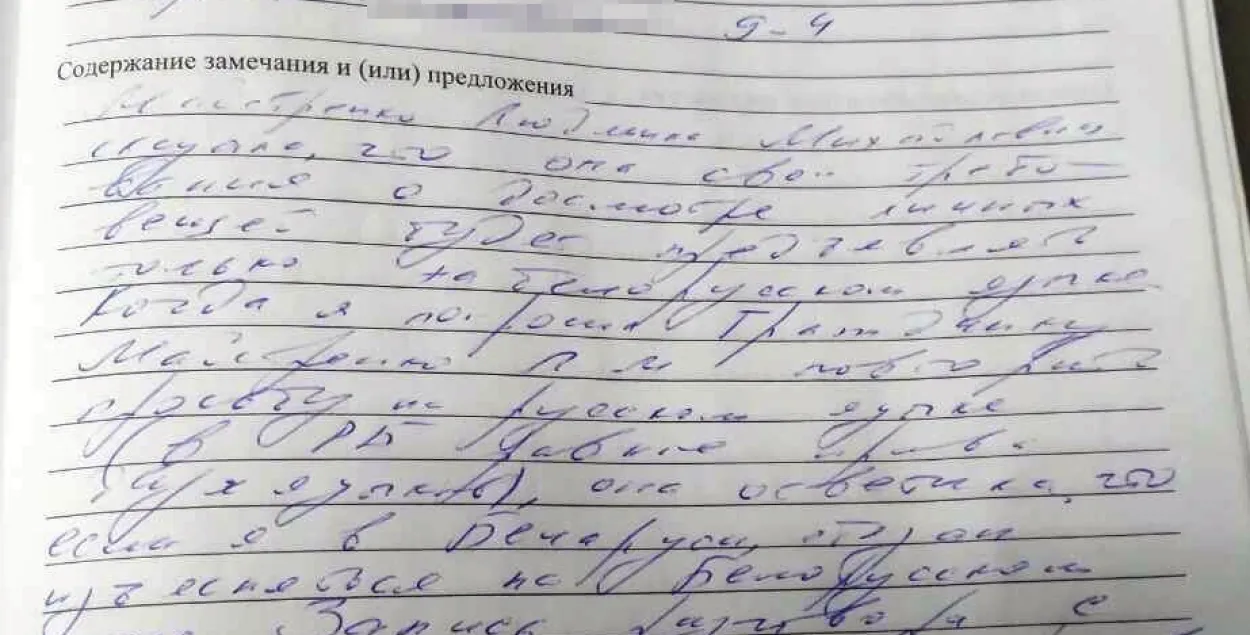 9-4
Содержание замечания и (или) предложения
Людмила Михайловна
что она свои требо-
вания о досмотре личных
вещей будет предъявлять
только на белорусском языке.
Когда я попросил Гражданку
Майстренко Л М повторить
просьбу на русском языке
(в РБ равные права
двух языков), она ответила, что
если я в Беларуси,
изъясняться на Белорусском
Запись разговора с